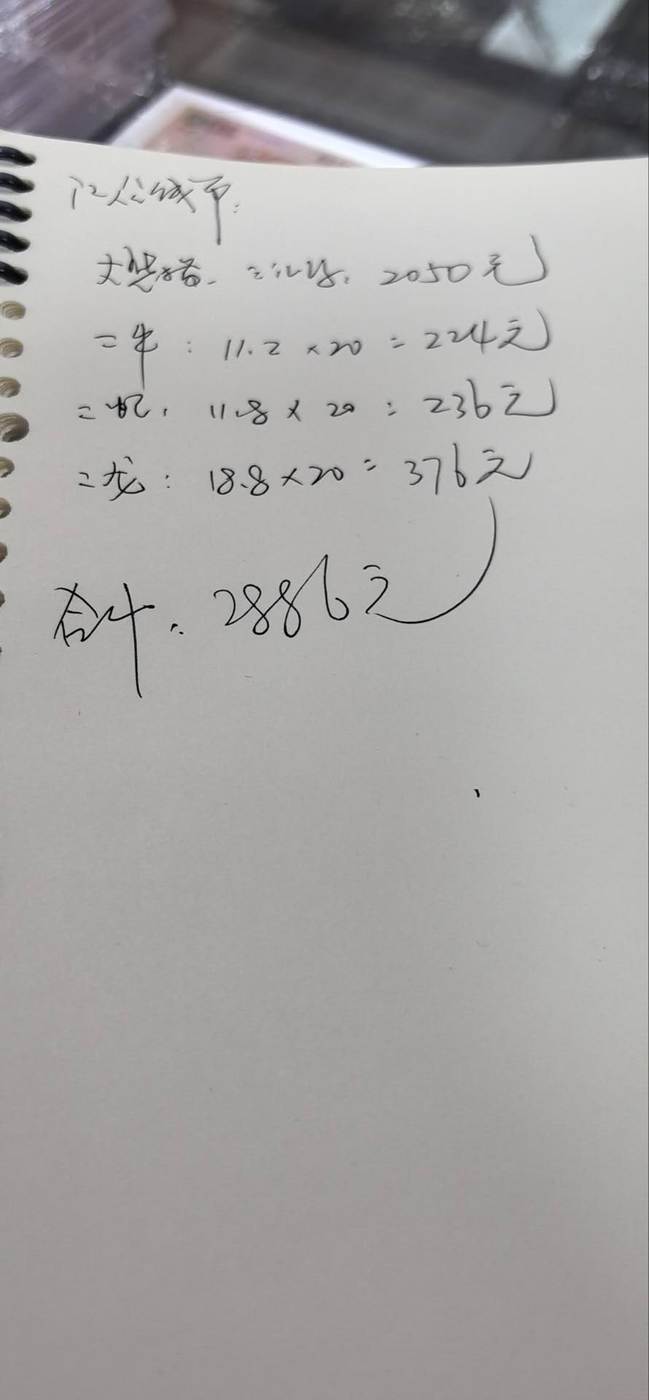 江公钱币:
大 2050元
二牛: 11.2 × 20 = 224元
二蛇: 11.8 × 20 = 236元
二龙: 18.8 × 20 = 376元
合计: 2886元